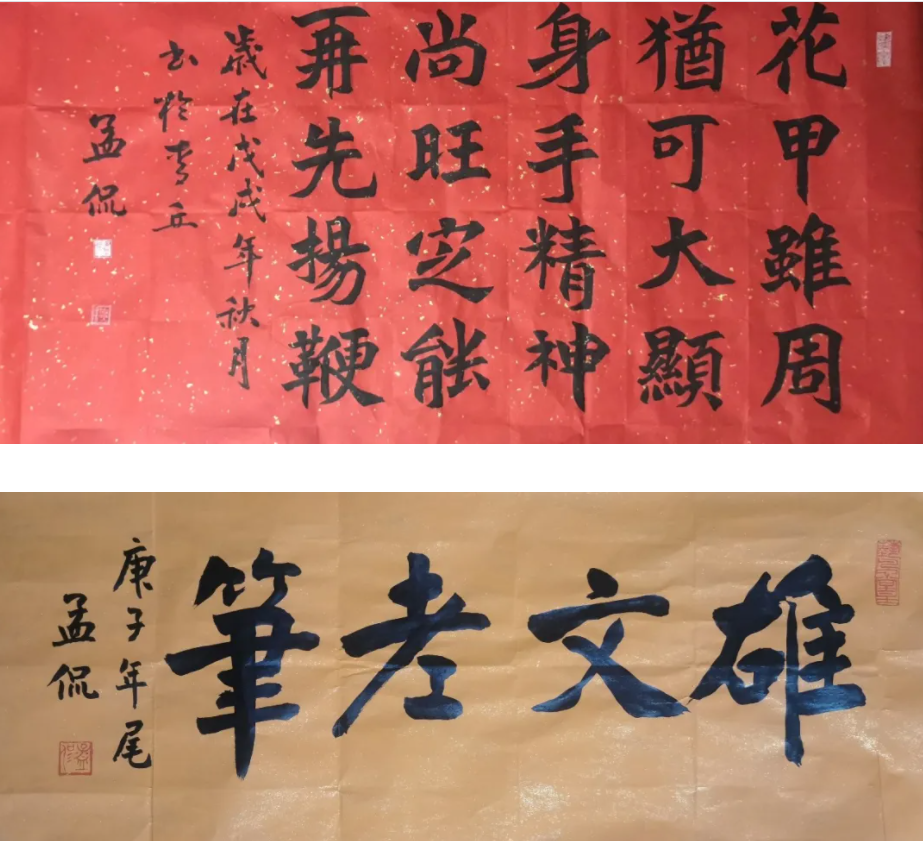 花甲雖周
猶可大顯
身手精神
尚旺㝎能
再先揚鞭
歲在戊戌年秋月
书於丘
孟侃
雄文老筆
庚子年尾
孟侃